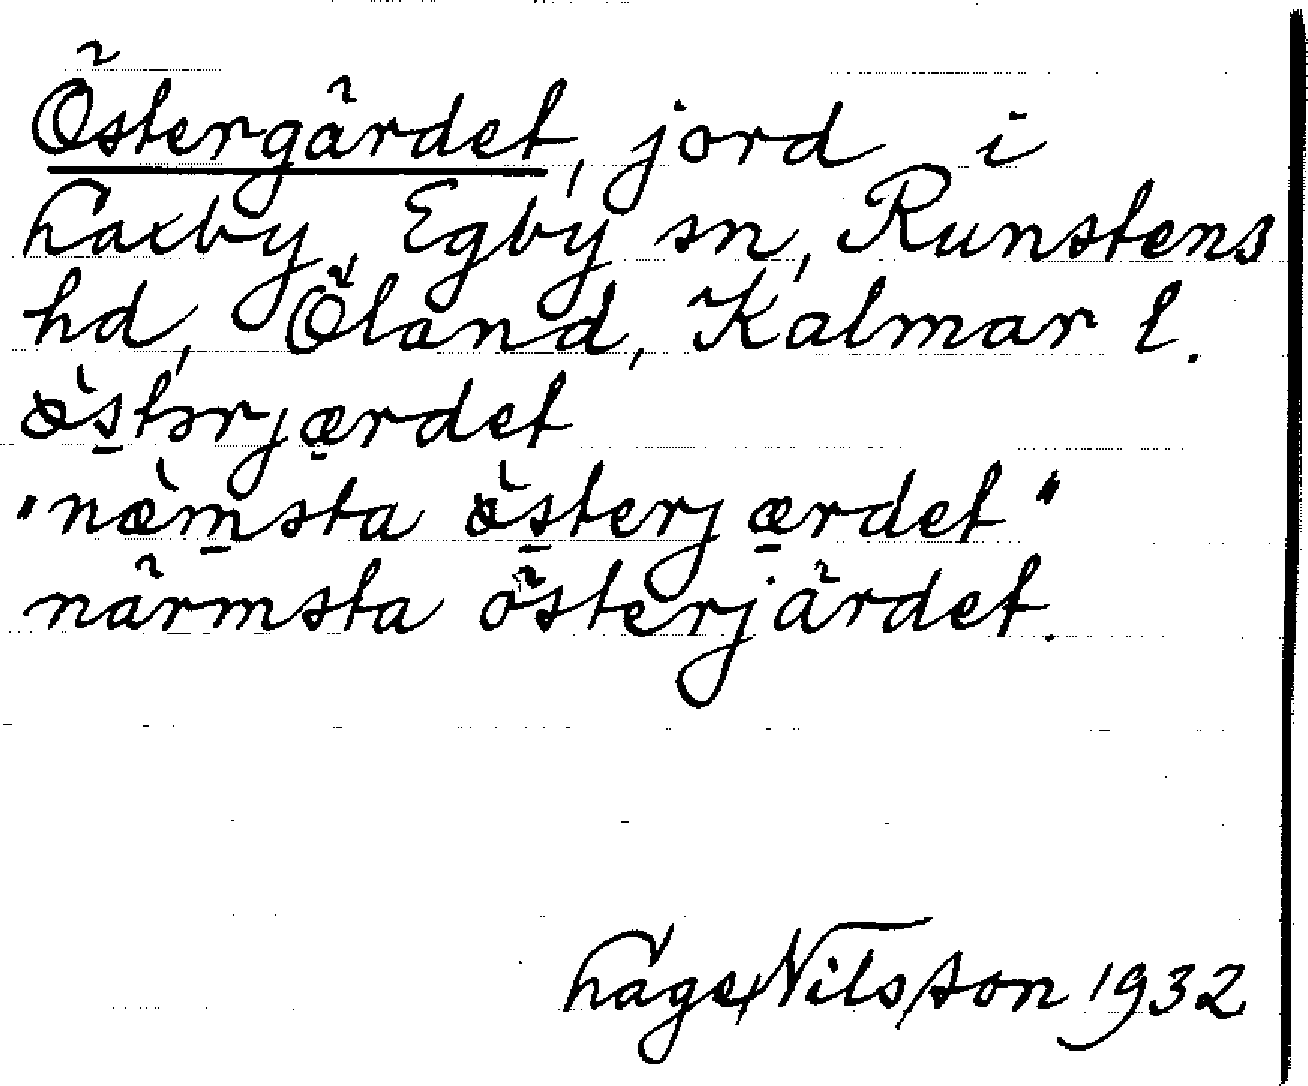 Östergärdet, jord i
Egby sn, Runstens
hd, Öland, Kalmar l.
ö̀s̲tərjæ̠rdet
"næ̀m̲sta ö̀s̲terjæ̠rdet"
närmsta österjärdet.
Nilsson 1932